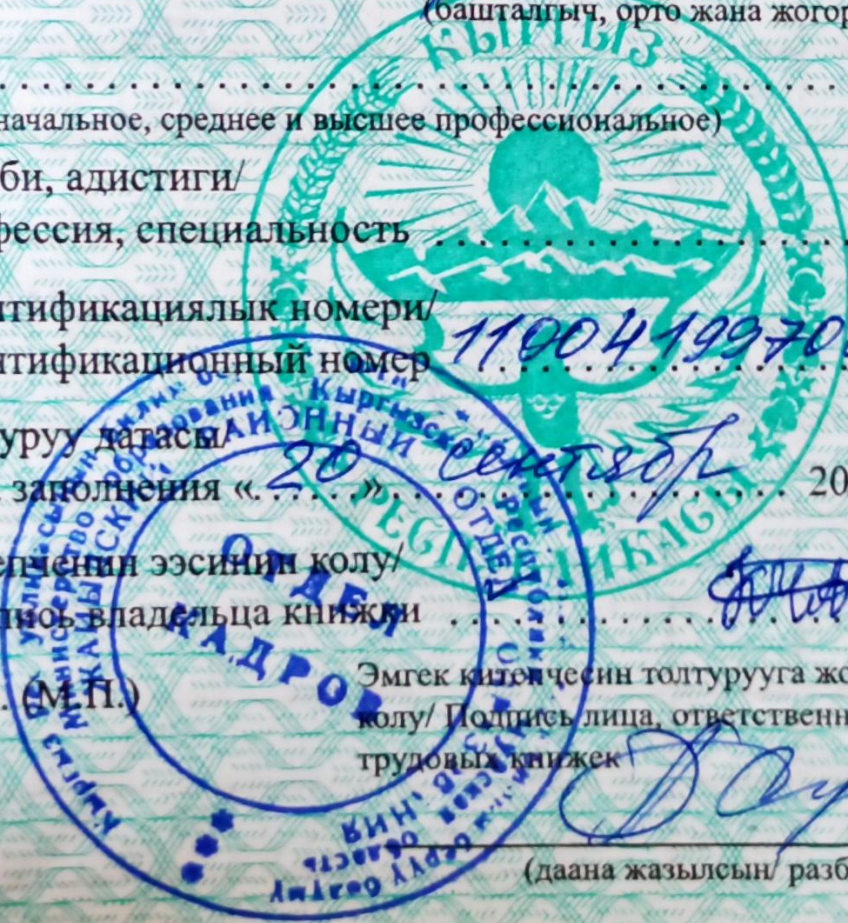 (башталгыч, орто жана жогор
КЫРГЫЗ
начальное, среднее и высшее профессиональное)
би, адистиги/
фессия, специальность
нтификациялык номери/
нтификационный номер 11904199700
уруу датасы/
заполнения «20» сентябр 20
РЕСПУБЛИКАСЫ
епченин ээсинин колу/
пись владельца книжки
(М.П.)
Эмгек китепчесин толтурууга жо
колу/ Подпись лица, ответственн
трудовых книжек
(даана жазылсын/ разб
РАЙОННЫЙ ОТДЕЛ
Министерство образования Кыргызской Республики
область
ОТДЕЛ
КАДРОВ